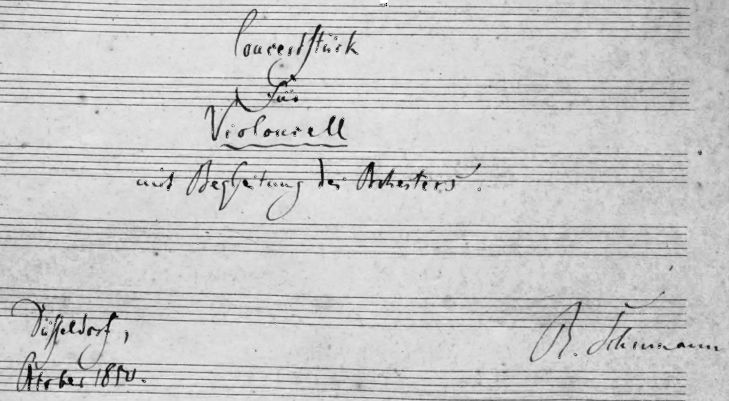 Concertstück
für
Violoncell
mit Begleitung des Orchesters.
Düsseldorf,
October 1850.
R. Schumann